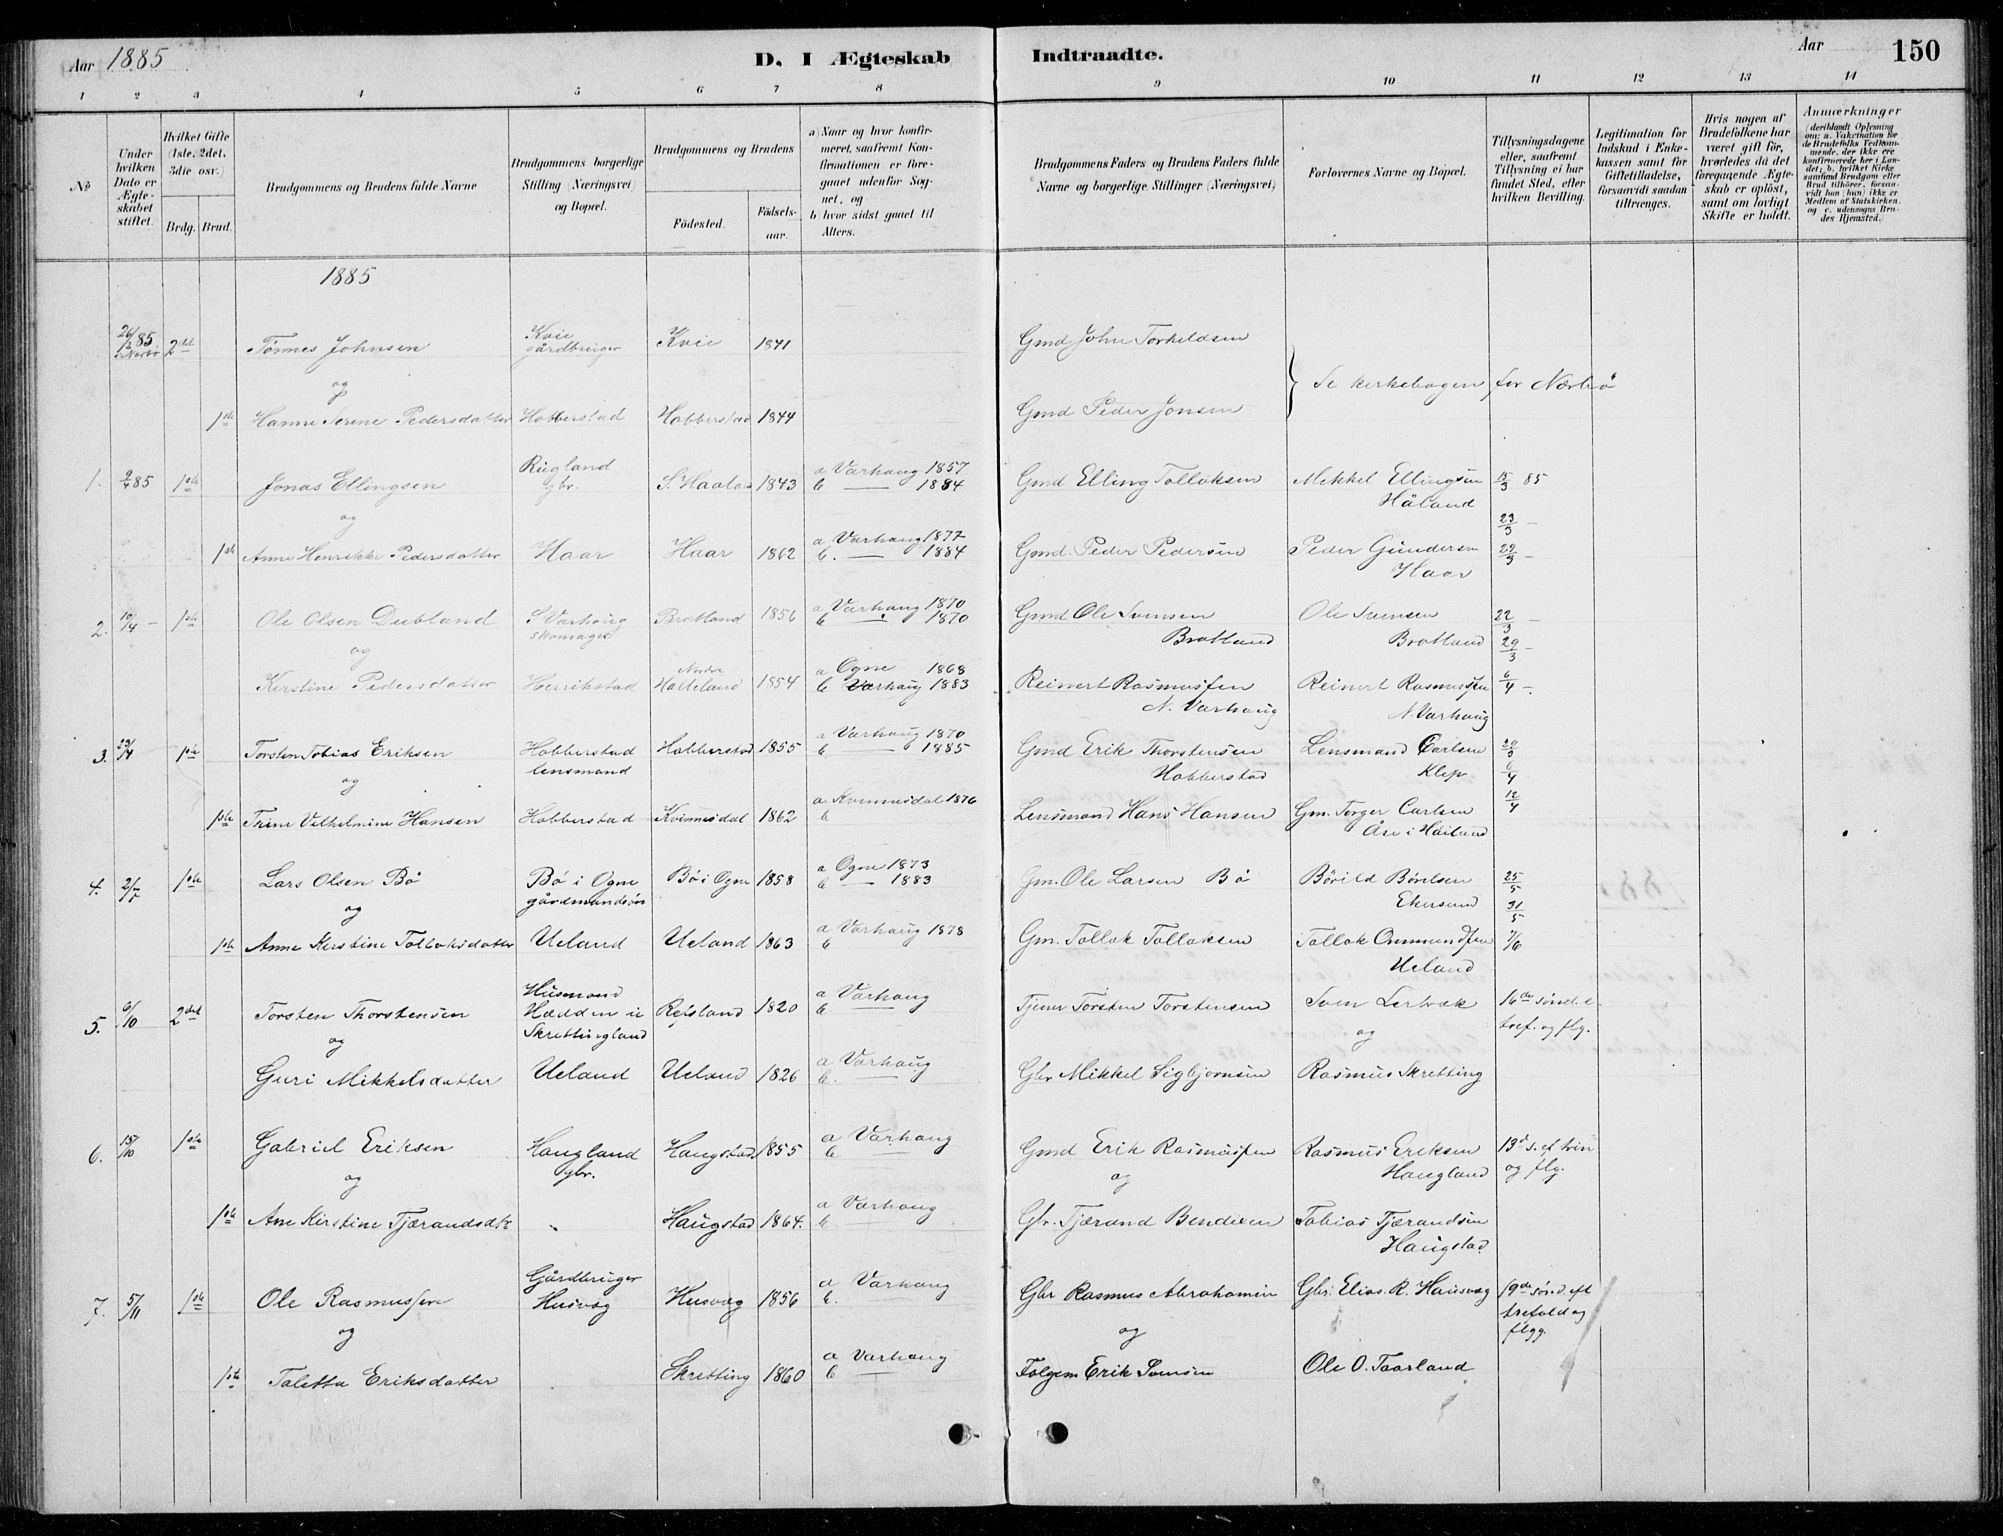 Aar 1885
D. I Ægteskab Indtraadte.
Aar
150
1 2 3 4 5 6 7 8 9 10 11 12 13 14
No
Under hvilken Dato er Ægte-skabet stiftet.
Hvilket Gifte (1ste, 2det, 3die osv.)
Brdg. Brud.
Brudgommens og Brudens fulde Navne
Brudgommens borgerlige Stilling (Næringsvei) og Bopæl.
Brudgommens og Brudens
Fødested.
Fødsels-aar.
a) Naar og hvor konfir-meret, saafremt Kon-firmationen er fore-gaaet udenfor Sog-net, og
b) hvor sidst gaaet til Alters.
Brudgommens Faders og Brudens Faders fulde Navne og borgerlige Stillinger (Næringsvei)
Forlovernes Navne og Bopæl.
Tillysningsdagene eller, saafremt Tillysning ei har fundet Sted, efter hvilken Bevilling.
Legitimation for Indskud i Enke-kassen samt for Giftetilladelse, forsaavidt saadan tiltrænges.
Hvis nogen af Brudefolkene har været gift før, hvorledes da det foregaaende Ægte-skab er opløst, samt om lovligt Skifte er holdt.
Anmærkninger (deriblandt Oplysning om: a. Vakcination for de Brudefolks Vedkom-mende, der ikke ere konfirmerede her i Lan-det; b. hvilket Kirke-samfund Brudgom eller Brud tilhører, forsaa-vidt han (hun) ikke er Medlem af Statskirken, og c. udensogns Bru-des Hjemsted.
1885
26/2 85 Nærbø 2det Tönnes Johnsen Kvie gårdbruger Kvie 1841 Gmd John Torkeldsen
og } Se kirkebogen for Nærbø
1ste Hanne Serine Pedersdatter Hobberstad Hobberstad 1844 Gmd Peder Jonsen
1. 9/4 85 1ste Jonas Ellingsen Rugland gbr. S. Haaland 1843 a Varhaug 1857 Gmd Elling Tollaksen Mikkel Ellingsen Håland 15/3 85
og b — 1884 23/3 —
1ste Anne Henrikke Pedersdatter Haar Haar 1862 a Varhaug 1877 b. — 1884 Gmd. Peder Pedersen Peder Gundersen Haar 29/3 —
2. 10/4 — 1ste Ole Olsen Dubland S Varhaug skomager Brotland 1856 a Varhaug 1870 b — 1870 Gmd Ole Svensen Brotland Ole Svensen Brotland 22/3 —
og 29/3 —
Kirstine Pedersdatter Henrikstad Nordre Hatteland 1854 a Ogne 1868 b Varhaug 1883 Reinert Rasmussen N. Varhaug Reinert Rasmussen N. Varhaug 6/4 —.
3. 23/4 1ste Torsten Tobias Eriksen Hobberstad lensmand Hobberstad 1855 a Varhaug 1870 b — 1885 Gmd Erik Thorstensen Hobberstad Lensmand Carlsen Klep
og 6/4
1ste Trine Vilhelmine Hansen Hobberstad Kvinnesdal 1862 a Kvinnesdal 1876 b Lensmand Hans Hansen Gm. Torger Carlsen 12/4
4. 2/7 1ste Lars Olsen Bö Bö i Ogne gårdmandsön Bö i Ogne 1858 a Ogne 1873 b — 1883 Gm. Ole Larsen Bö Börild Börildsen Ekersund 25/5
og 31/5
1ste Anne Kirstine Tollaksdatter Ueland Ueland 1863 a Varhaug 1878 b Gm. Tollak Tollaksen Tollak Ommundsen Ueland 7/6
5. 6/10 2det Torsten Thorstensen Husmand Hædden u Skrettingland Refsland 1820 a Varhaug b — Tjener Torsten Torstensen Sven Lerbræk 16de sönd. e tref. og flg.
og og
Guri Mikkelsdatter Ueland Ueland 1826 a Varhaug b. — Gbr Mikkel Sigbjørnsen Rasmus Skretting
6. 15/10 1ste Gabriel Eriksen Haugland gbr. Haugstad 1855 a Varhaug b — Gmd Erik Rasmussen Rasmus Eriksen Haugland 19d s. ef trin og flg.
og og
1ste Ane Kirstine Tjærandsdtr Haugstad 1864. a Varhaug b — Gbr. Tjærand Bendixen Tobias Tjærandsen Haugstad
7. 5/11 1ste Ole Rasmussen Gårdbruger Husvæg Husvæg 1856 a Varhaug b. — Gbr Rasmus Abrahamsen Gbr. Elias R. Hausvæg 19de sönd. eft trefold og flgg.
og og
1ste Taletta Eriksdatter Skretting 1860 a Varhaug b — Folgem Erik Svensen Ole O. Taarland